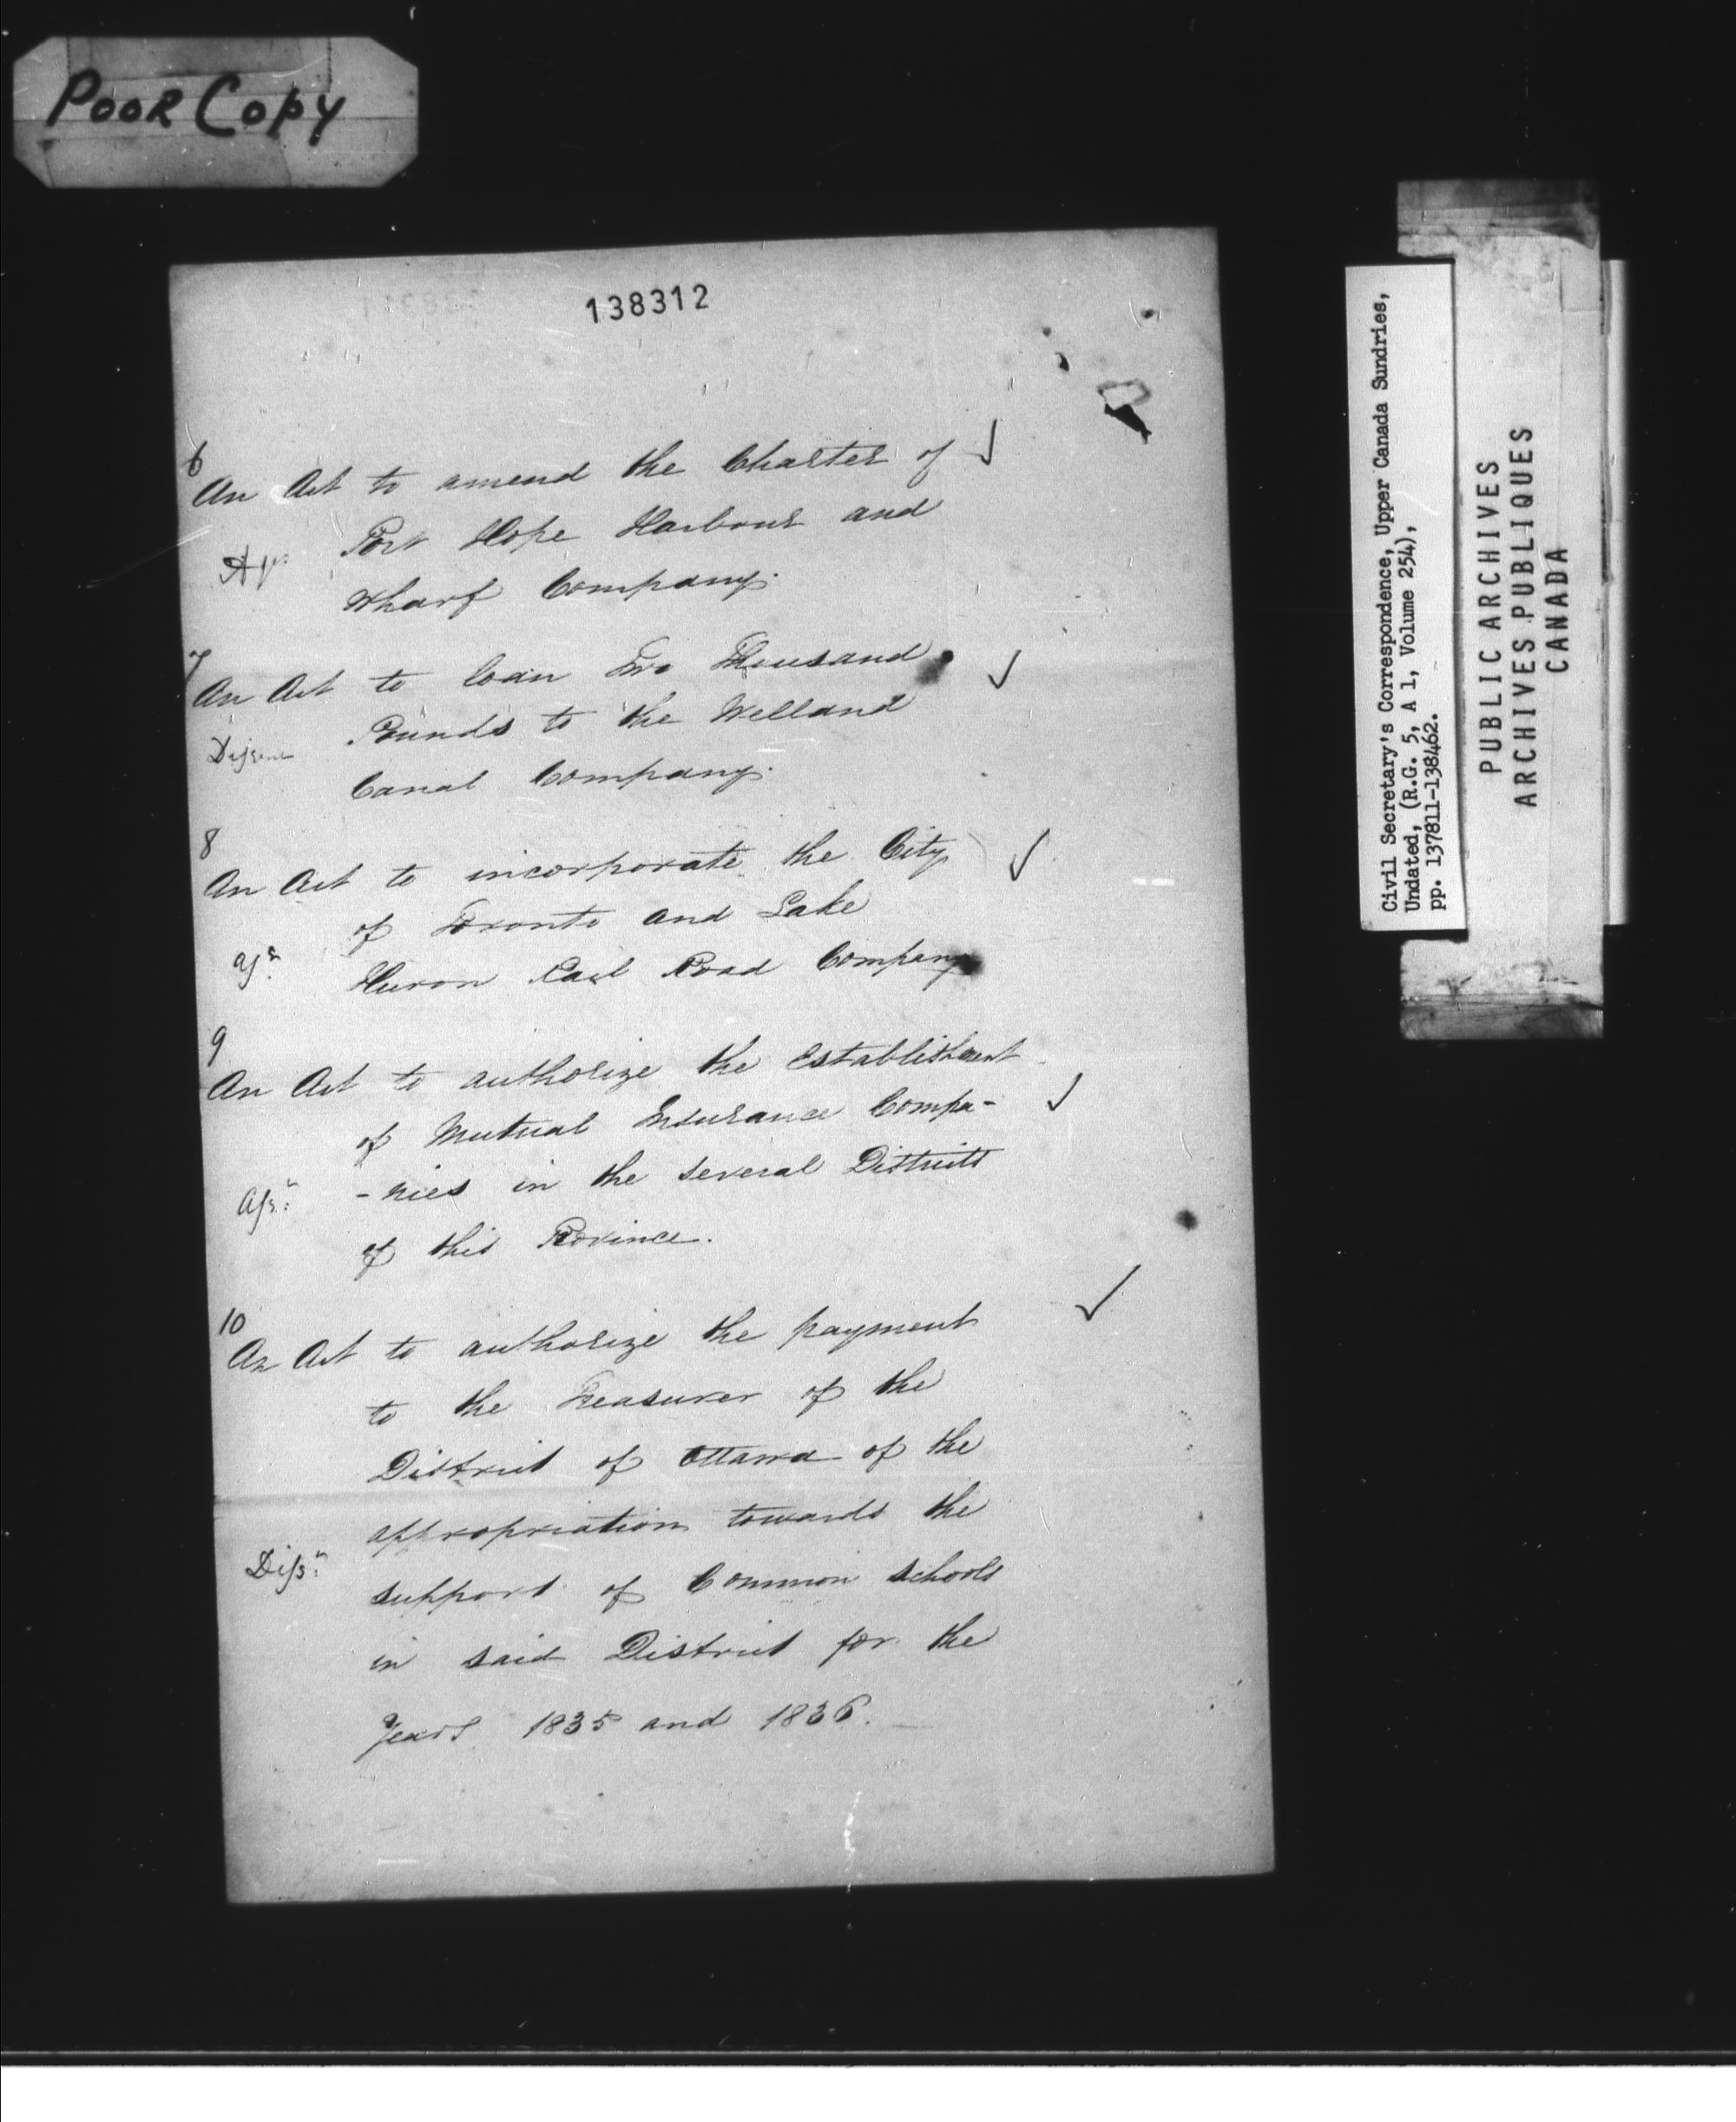 Poor Copy
138312
6
An Act to amend the Charter of ✓
Port Hope Harbour and
Wharf Company.
7
An Act to loan Two Thousand ✓
Pounds to the Welland
Canal Company.
8
An Act to incorporate the City ✓
of Toronto and Lake
Huron Rail Road Company
9
An Act to authorize the Establishment
of Mutual Insurance Compa- ✓
-nies in the several Districts
Ass:
of this Province.
10
An Act to authorize the payment ✓
to the Treasurer of the
District of Ottawa of the
appropriation towards the
Diss:
support of Common Schools
in said District for the
Years 1835 and 1836.
Civil Secretary's Correspondence, Upper Canada Sundries,
Undated, (R.G. 5, A 1, Volume 254),
pp. 137811-138462.
PUBLIC ARCHIVES
ARCHIVES PUBLIQUES
CANADA